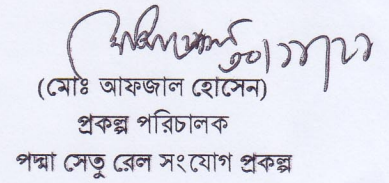 (মোঃ আফজাল হোসেন)
প্রকল্প পরিচালক
পদ্মা সেতু রেল সংযোগ প্রকল্প